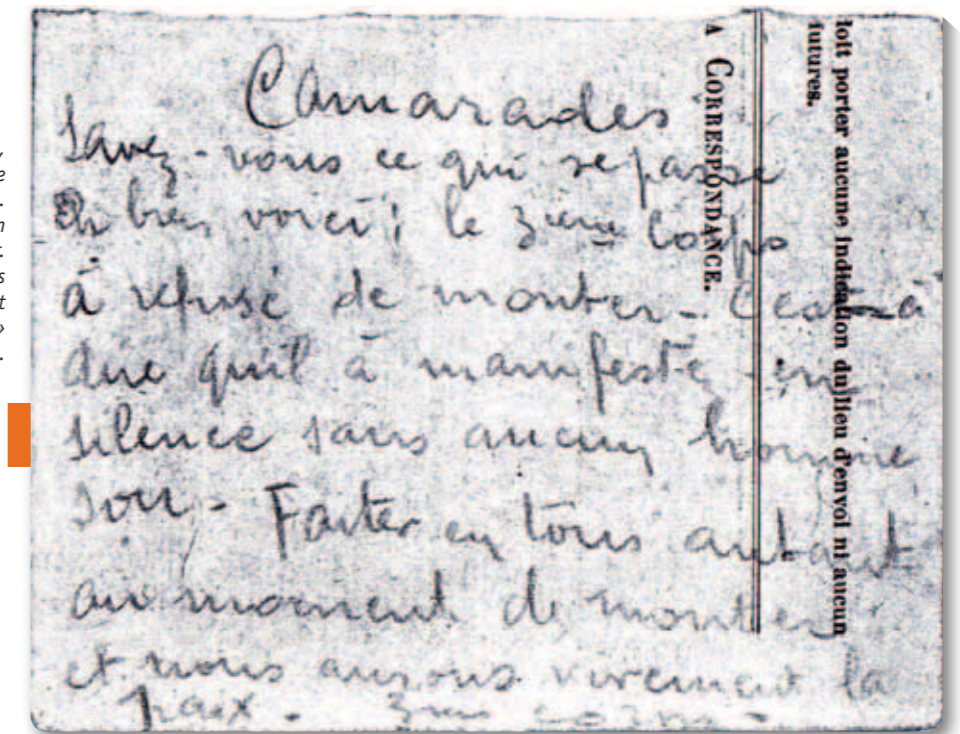 Camarades
Savez-vous ce qui se passe
Eh bien voici ! le 3ieme Corps
à refusé de monter - C'est à
dire qu'il à manifesté en
silence sans aucun homme
sou - Faites en tous autant
au moment de monter
et nous aurons vivement la
paix - 3me corps -
A CORRESPONDANCE.
doit porter aucune indication du lieu d'envoi ni aucun
futures.